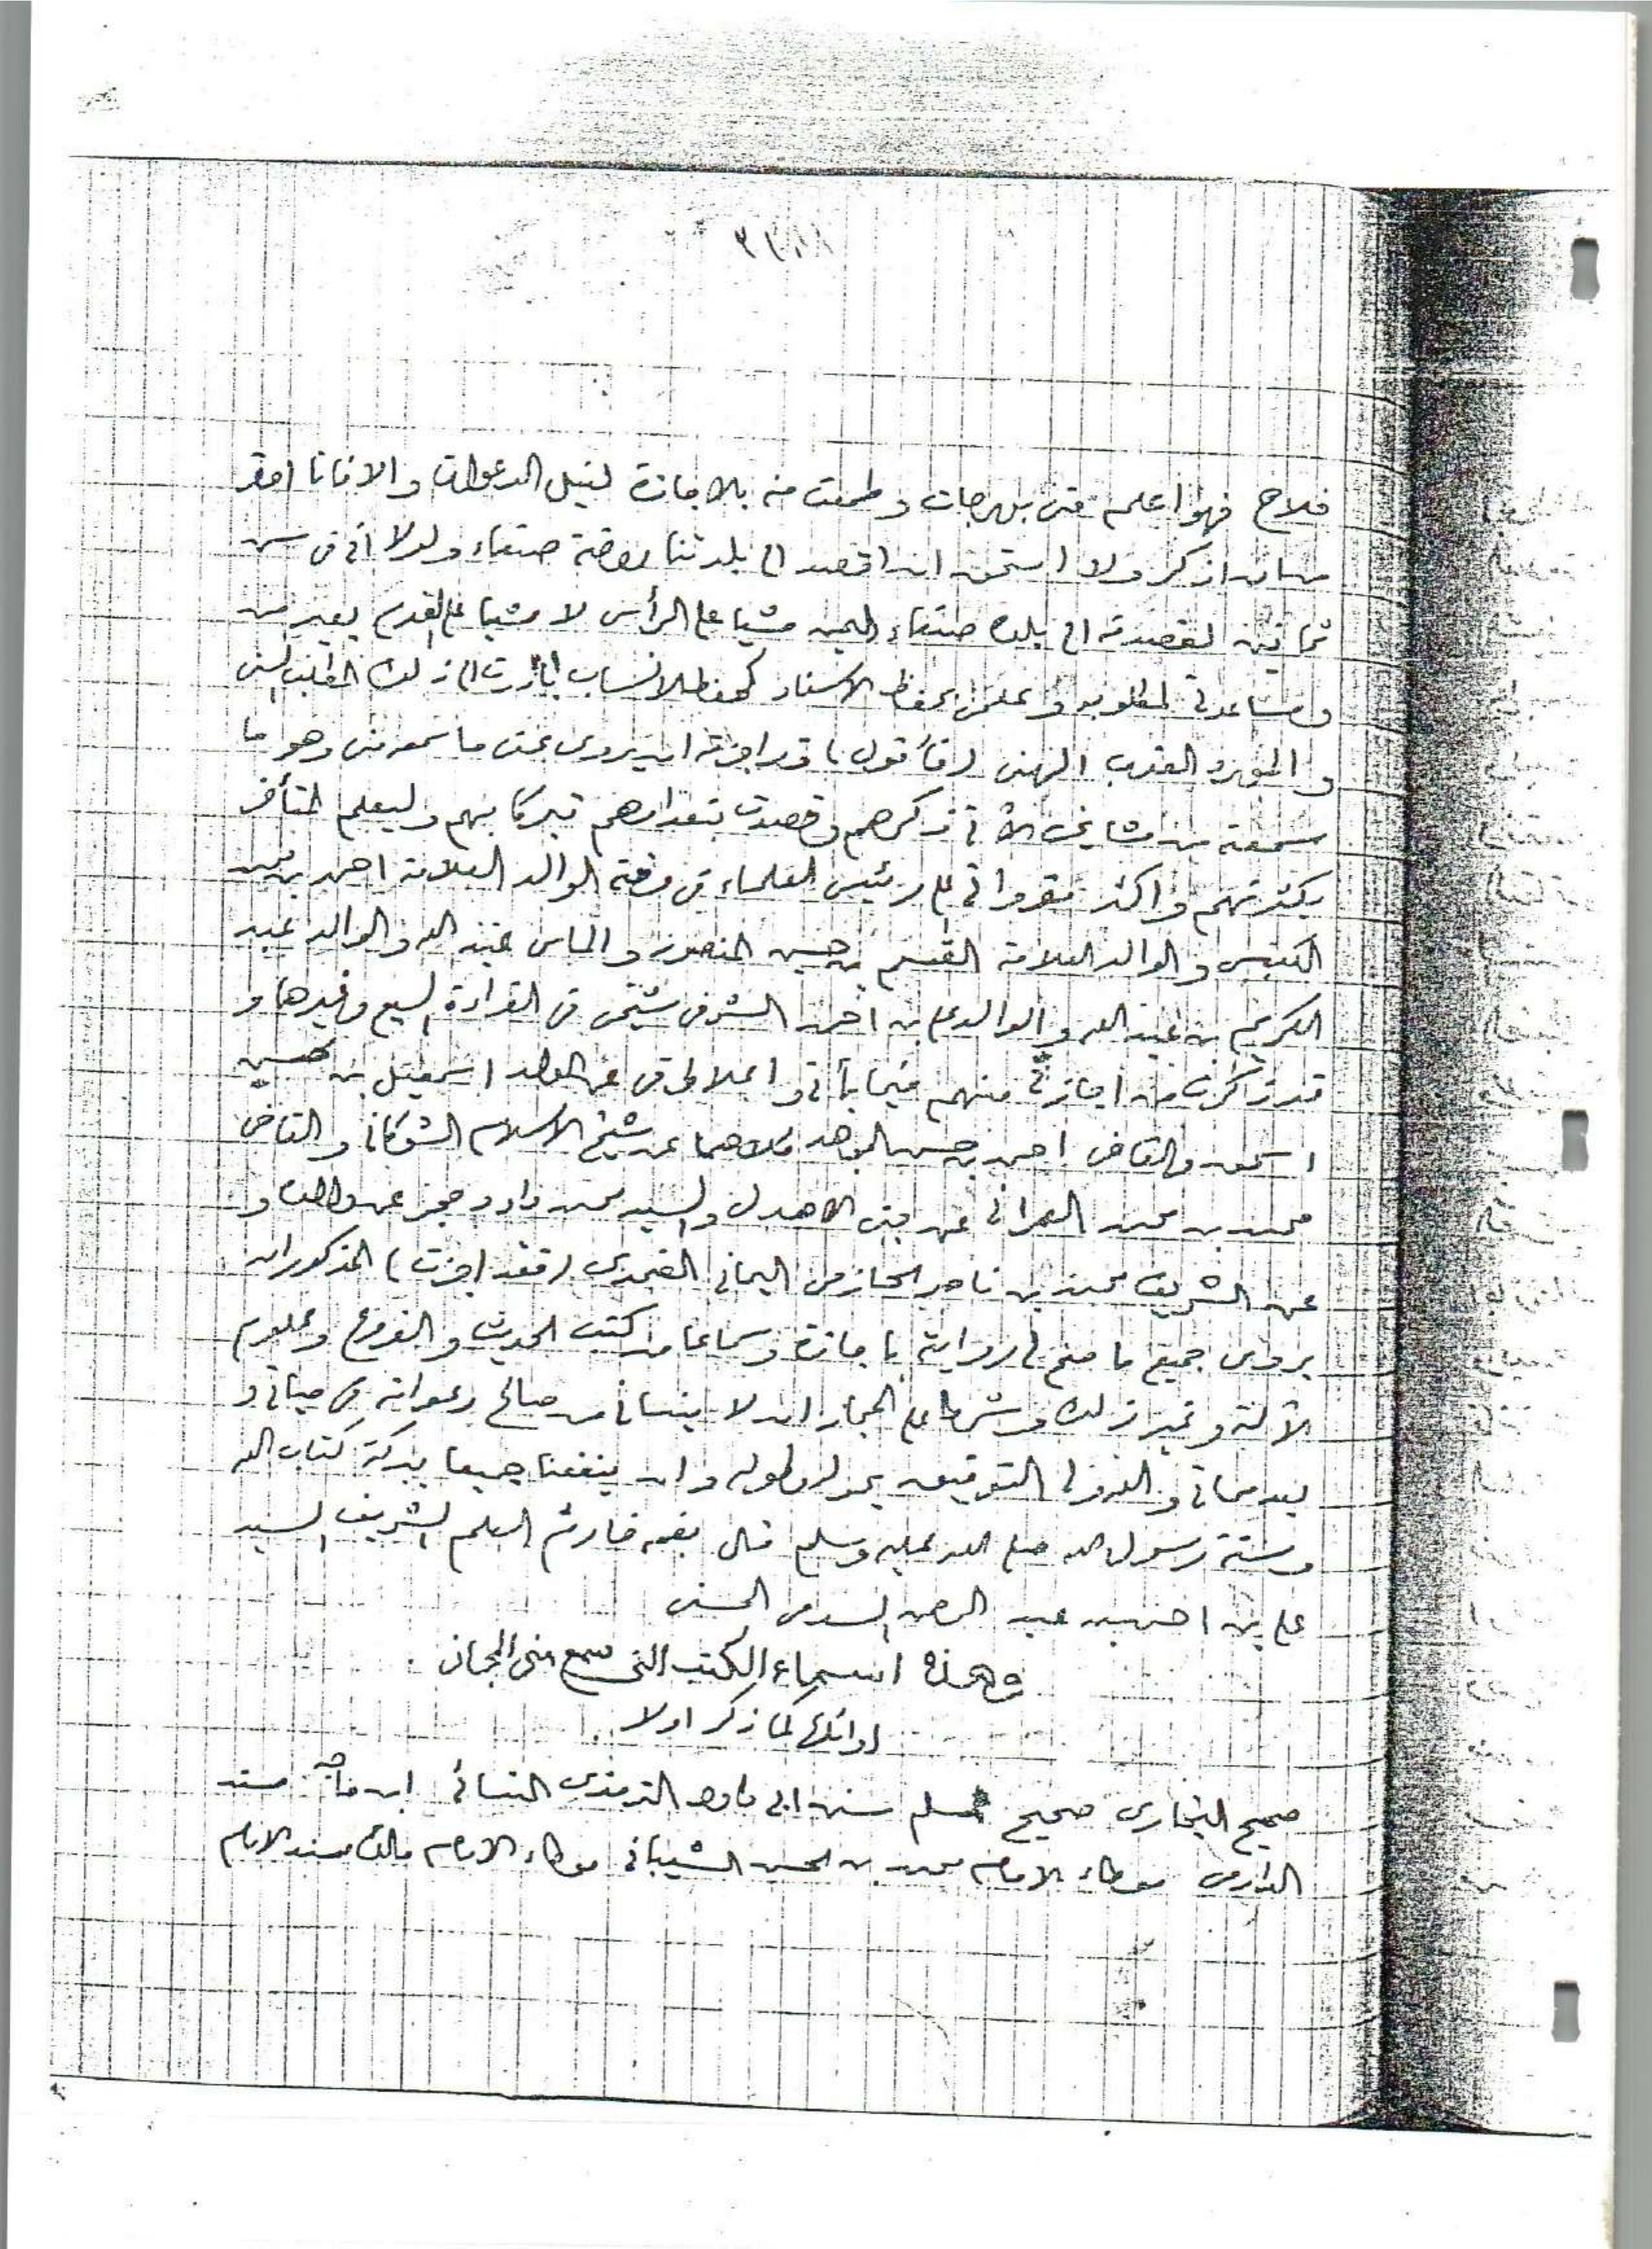 فلاح فهو اعلم منى بدرجات وطمعت منه بالاجازة لنيل الدعوات والا فانا احقر
من ان اذكر ولا استحق ان اقصد الى بلدتنا روضة صنعاء ولولا انى فى سن
ثمانين لقصدته الى بلده صنعاء اليمن مشيا على الرأس لا مشيا على القدم
ومساعدتى لمطلوبه وعلمى بحفظ الاسناد كحفظ الانساب بادرت الى ذلك الطلب السنى
و العذب الهنى (فأقول) قد اجزته ان يروى عنى ما سمعه منى وهو ما
سمعته من مشايخى الآتى ذكرهم وقصدت بتعدادهم تبركا بهم وليعلم المتأخر
بكثرتهم واكثر مقرواتى على رئيس العلماء فى وقته الوالد العلامة احمد بن محمد
الكبسى والوالد العلامة القسم بن حسين المنصور والماس عبد الله والوالد عبد
الكريم بن عبد الله والوالد على بن احمد الشرفى شيخى فى القراءة السبع وغيرها و
قد ذكرت من اجازنى منهم فيما يأتى و اسمعيل بن محسن
اسحق والقاضى احمد بن حسن المجاهد كلاهما عن شيخ الاسلام الشوكانى والقاضى
محمد بن محمد العمرانى عن بنى الاهدل والسيد محمد داود حجر عن والده و
عن الشريف محمد بن ناصر الحازمى اليمانى الضمدى (فقد اجزت) المذكور ان
يروى جميع ما صح لى روايته باجازة وسماعا من كتب الحديث والفروع وعلوم
الآلة وغير ذلك وشرطى على المجاز ان لا ينسانى من صالح دعواته فى حياتى و
بعد مماتى والله ولى التوفيق بحوله وطوله وان ينفعنا جميعا ببركة كتاب الله
وسنة رسول الله صلى الله عليه وسلم قال بفمه خادم العلم الشريف السيد
على بن احمد بن عبد الرحمن السدمى الحسنى
وهذه اسماء الكتب التى سمع منى المجاز
اوائلها كما ذكر اولا
صحيح البخارى صحيح مسلم سنن ابى داود الترمذى النسائى ابن ماجه مسند
الدارمى موطاء الامام محمد بن الحسن الشيبانى موطاء الامام مالك مسند الامام